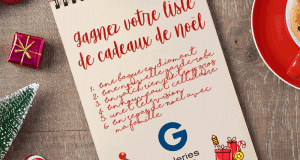 Gagnez votre liste
de cadeaux de noël
1. une bague en diamant
2. une nouvelle garde robe
3. un
4. un
5. une télévision
6. un repas de noël avec
ma famille
G
leries